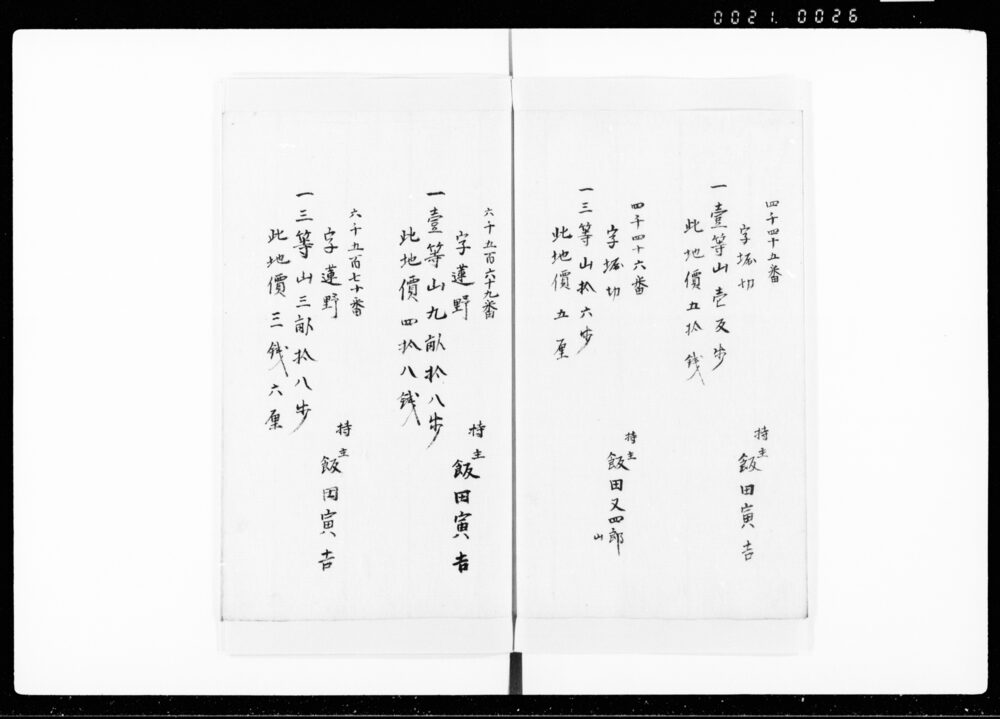 0021.0026
四千四十五番
字堀切
一壹等山壱反歩
此地價五拾銭
持主
飯田寅吉
四千四十六番
字堀切
一三等山拾六歩
此地價五厘
持主
飯田又四郎
山
六千五百六十九番
字蓮野
一壹等山九畝拾八歩
此地價四拾八銭
持主
飯田寅吉
六千五百七十番
字蓮野
一三等山三畝拾八歩
此地價三銭六厘
持主
飯田寅吉